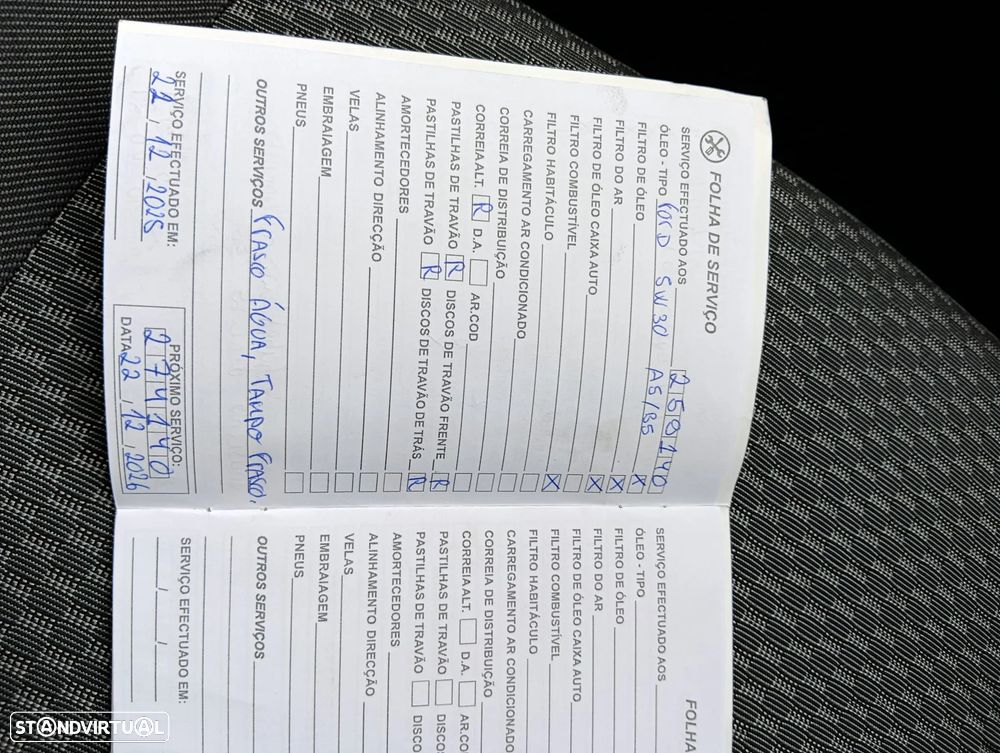 FOLHA DE SERVIÇO
SERVIÇO EFECTUADO AOS 259140
ÓLEO - TIPO FORD 5W30 A5/B5
FILTRO DE ÓLEO X
FILTRO DO AR X
FILTRO DE ÓLEO CAIXA AUTO X
FILTRO COMBUSTÍVEL
FILTRO HABITÁCULO X
CARREGAMENTO AR CONDICIONADO
CORREIA DE DISTRIBUIÇÃO
CORREIA ALT. R D.A. AR.COD
PASTILHAS DE TRAVÃO R DISCOS DE TRAVÃO FRENTE R
PASTILHAS DE TRAVÃO R DISCOS DE TRAVÃO DE TRÁS R
AMORTECEDORES
ALINHAMENTO DIRECÇÃO
VELAS
EMBRAIAGEM
PNEUS
OUTROS SERVIÇOS FRASCO ÁGUA, TAMPO FRASCO,
SERVIÇO EFECTUADO EM:
22 / 12 / 2025
PRÓXIMO SERVIÇO:
274140
DATA 22 / 12 / 2026
FOLHA
SERVIÇO EFECTUADO AOS
ÓLEO - TIPO
FILTRO DE ÓLEO
FILTRO DO AR
FILTRO DE ÓLEO CAIXA AUTO
FILTRO COMBUSTÍVEL
FILTRO HABITÁCULO
CARREGAMENTO AR CONDICIONADO
CORREIA DE DISTRIBUIÇÃO
CORREIA ALT. D.A. AR.CO
PASTILHAS DE TRAVÃO DISCOS
PASTILHAS DE TRAVÃO DISCO
AMORTECEDORES
ALINHAMENTO DIRECÇÃO
VELAS
EMBRAIAGEM
PNEUS
OUTROS SERVIÇOS
SERVIÇO EFECTUADO EM:
/ /
STANDVIRTUAL